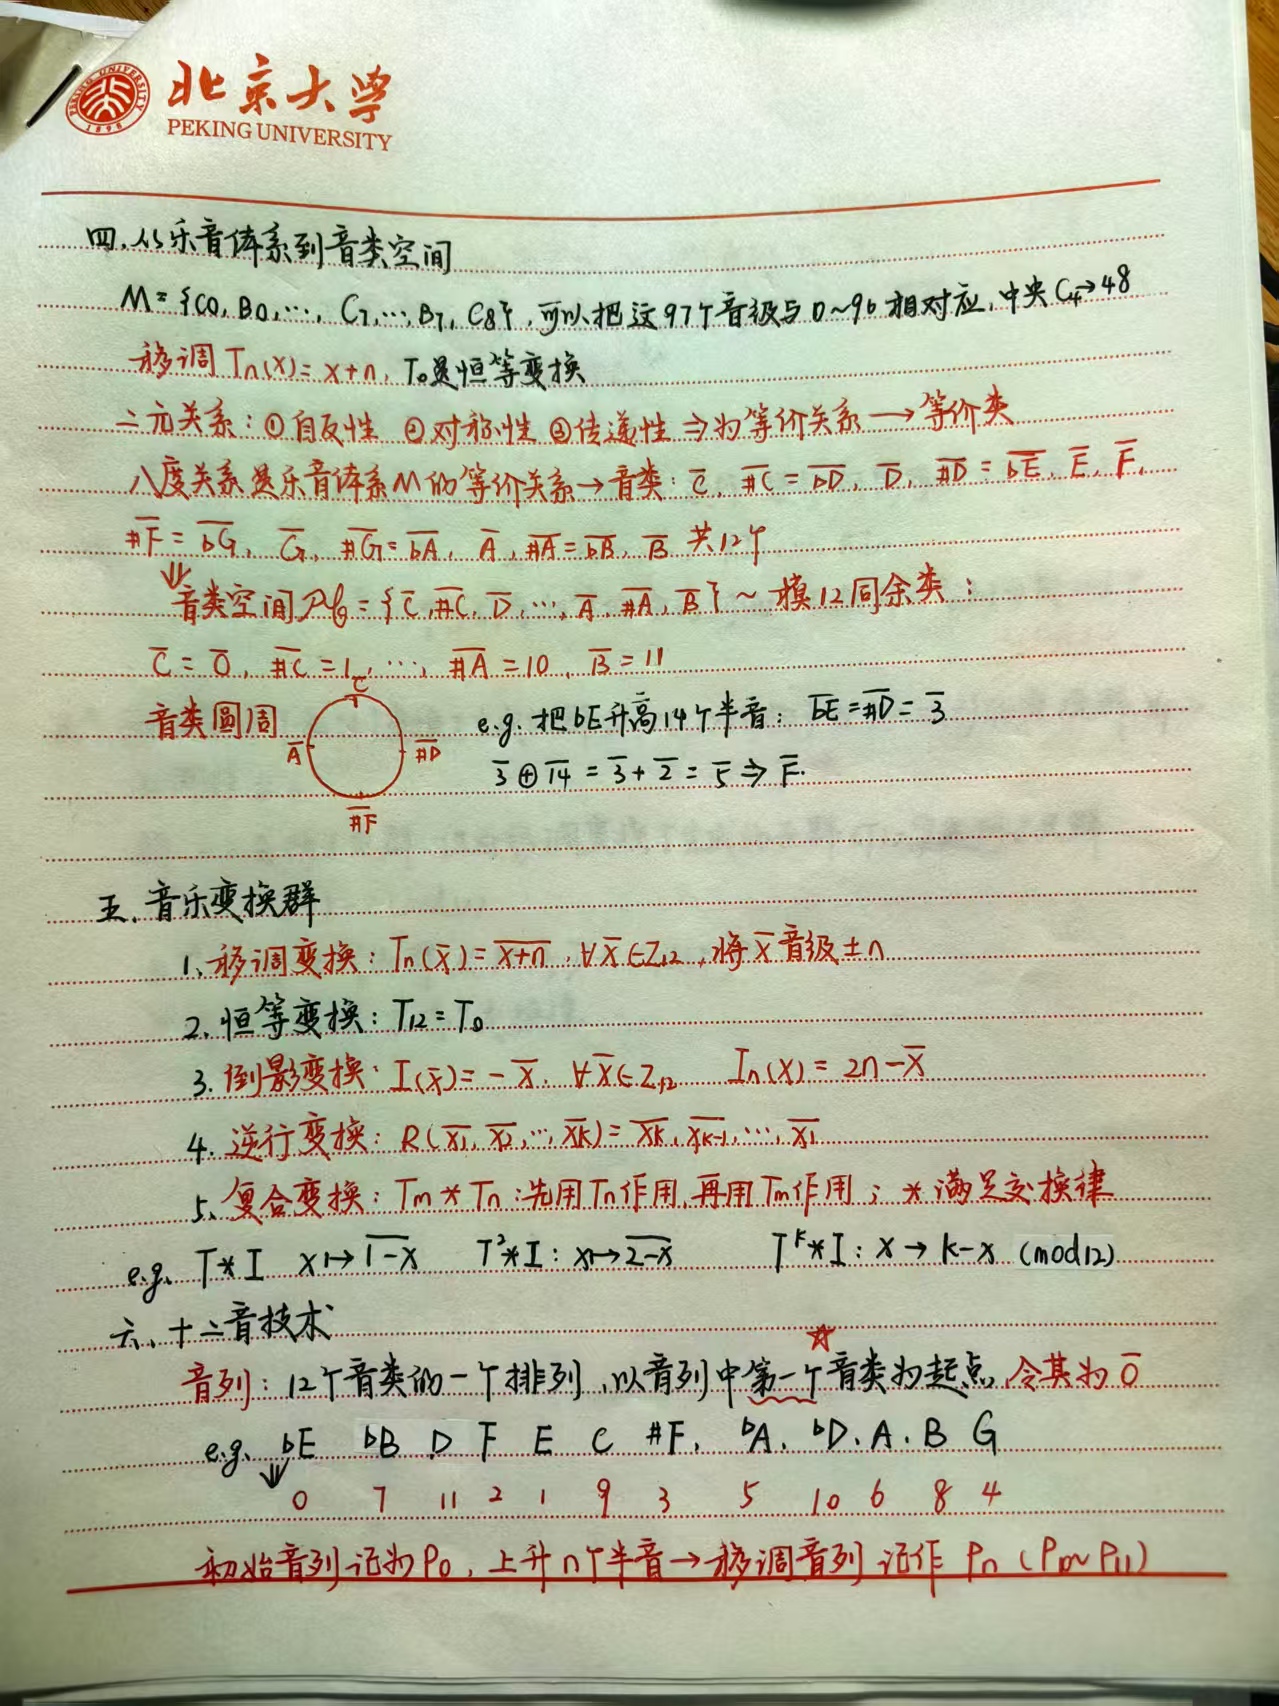 北京大学
PEKING UNIVERSITY
PEKING UNIVERSITY
1898
四、从乐音体系到音类空间
M = {C0, B0, …, C7, …, B7, C8}, 可以把这97个音级与0~96相对应, 中央C4→48
移调 Tn(x) = x+n, T0是恒等变换
二元关系: ①自反性 ②对称性 ③传递性 ⇒ 为等价关系 → 等价类
八度关系是乐音体系M的等价关系→音类: C̅, #C̅ = b̅D̅, D̅, #D̅ = b̅E̅, E̅, F̅,
#F̅ = b̅G̅, G̅, #G̅ = b̅A̅, A̅, #A̅ = b̅B̅, B̅ 共12个
⇓
音类空间 = {C̅, #C̅, D̅, …, A̅, #A̅, B̅} ~ 模12同余类:
C̅ = 0̅, #C̅ = 1, …, #A̅ = 10, B̅ = 11
音类圆周 C̅ A̅ #D̅ #F̅ e.g. 把bE升高14个半音: b̅E̅ = #D̅ = 3̅
3̅ ⊕ 1̅4̅ = 3̅ + 2̅ = 5̅ ⇒ F̅.
五、音乐变换群
1、移调变换: Tn(x̅) = x̅+̅n̅, ∀x̅∈Z12, 将x̅音级±n
2、恒等变换: T12 = T0
3、倒影变换: I(x̅) = −x̅, ∀x̅∈Z12 In(x) = 2n−x̅
4、逆行变换: R(x̅1, x̅2, …, x̅k) = x̅k, x̅k-1, …, x̅1
5、复合变换: Tm*Tn: 先用Tn作用, 再用Tm作用; *满足交换律
e.g. T*I x↦1̅−̅x̅ T²*I: x↦2̅−̅x̅ Tᵏ*I: x→k−x (mod12)
六、十二音技术
☆
音列: 12个音类的一个排列, 以音列中第一个音类为起点, 令其为0̅
e.g. bE bB D F E C #F, bA, bD, A, B G
⇓ 0 7 11 2 1 9 3 5 10 6 8 4
初始音列记为P0, 上升n个半音→移调音列 记作 Pn (P0~P11)